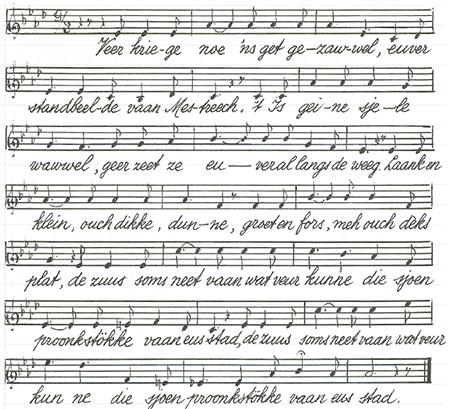 Veer krie-ge noe 'ns get ge-zaw-wel, euver
standbeel-de vaan Mes-treech. 't Is gei-ne sje-le
wawwel, geer zeet ze eu — veral langs de weeg. Laank en
klein, ouch dikke, dun-ne, groet en fors, meh ouch dèks
plat, de zuus soms neet vaan wat veur kunne die sjoen
proonkstökke vaan eus stad, de zuus soms neet vaan wat veur
kun ne die sjoen proonkstökke vaan eus stad.